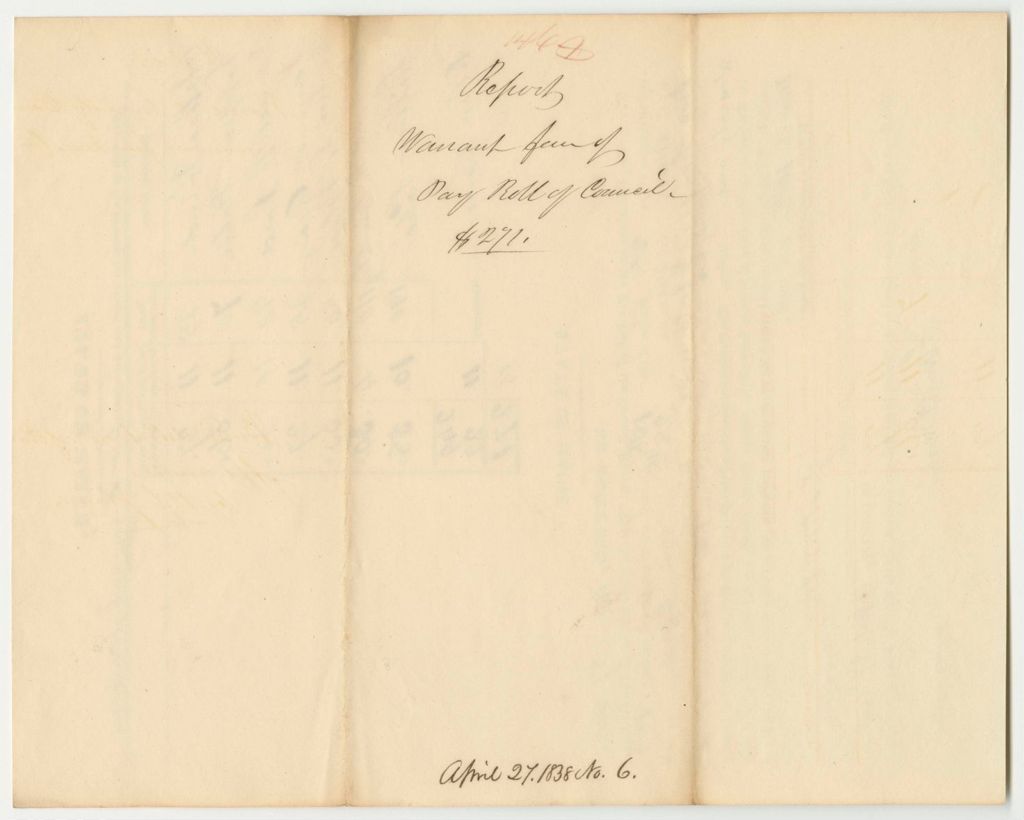 Report
Warrant favr of
Pay Roll of Council.
$271.
April 27. 1838 No. 6.